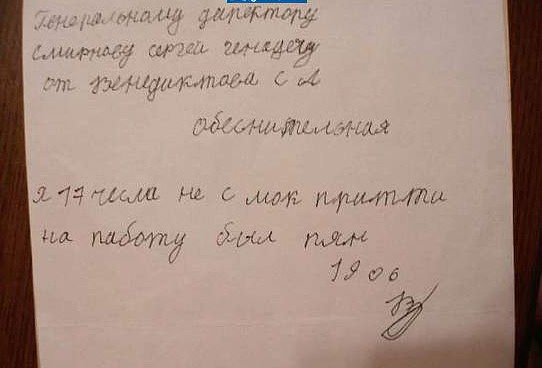 Генеральному директору
Смирнову сергей генадечу
от Венедиктова с А
обеснительная
я 17 чесла не с мок притти
на работу был пян
19 06